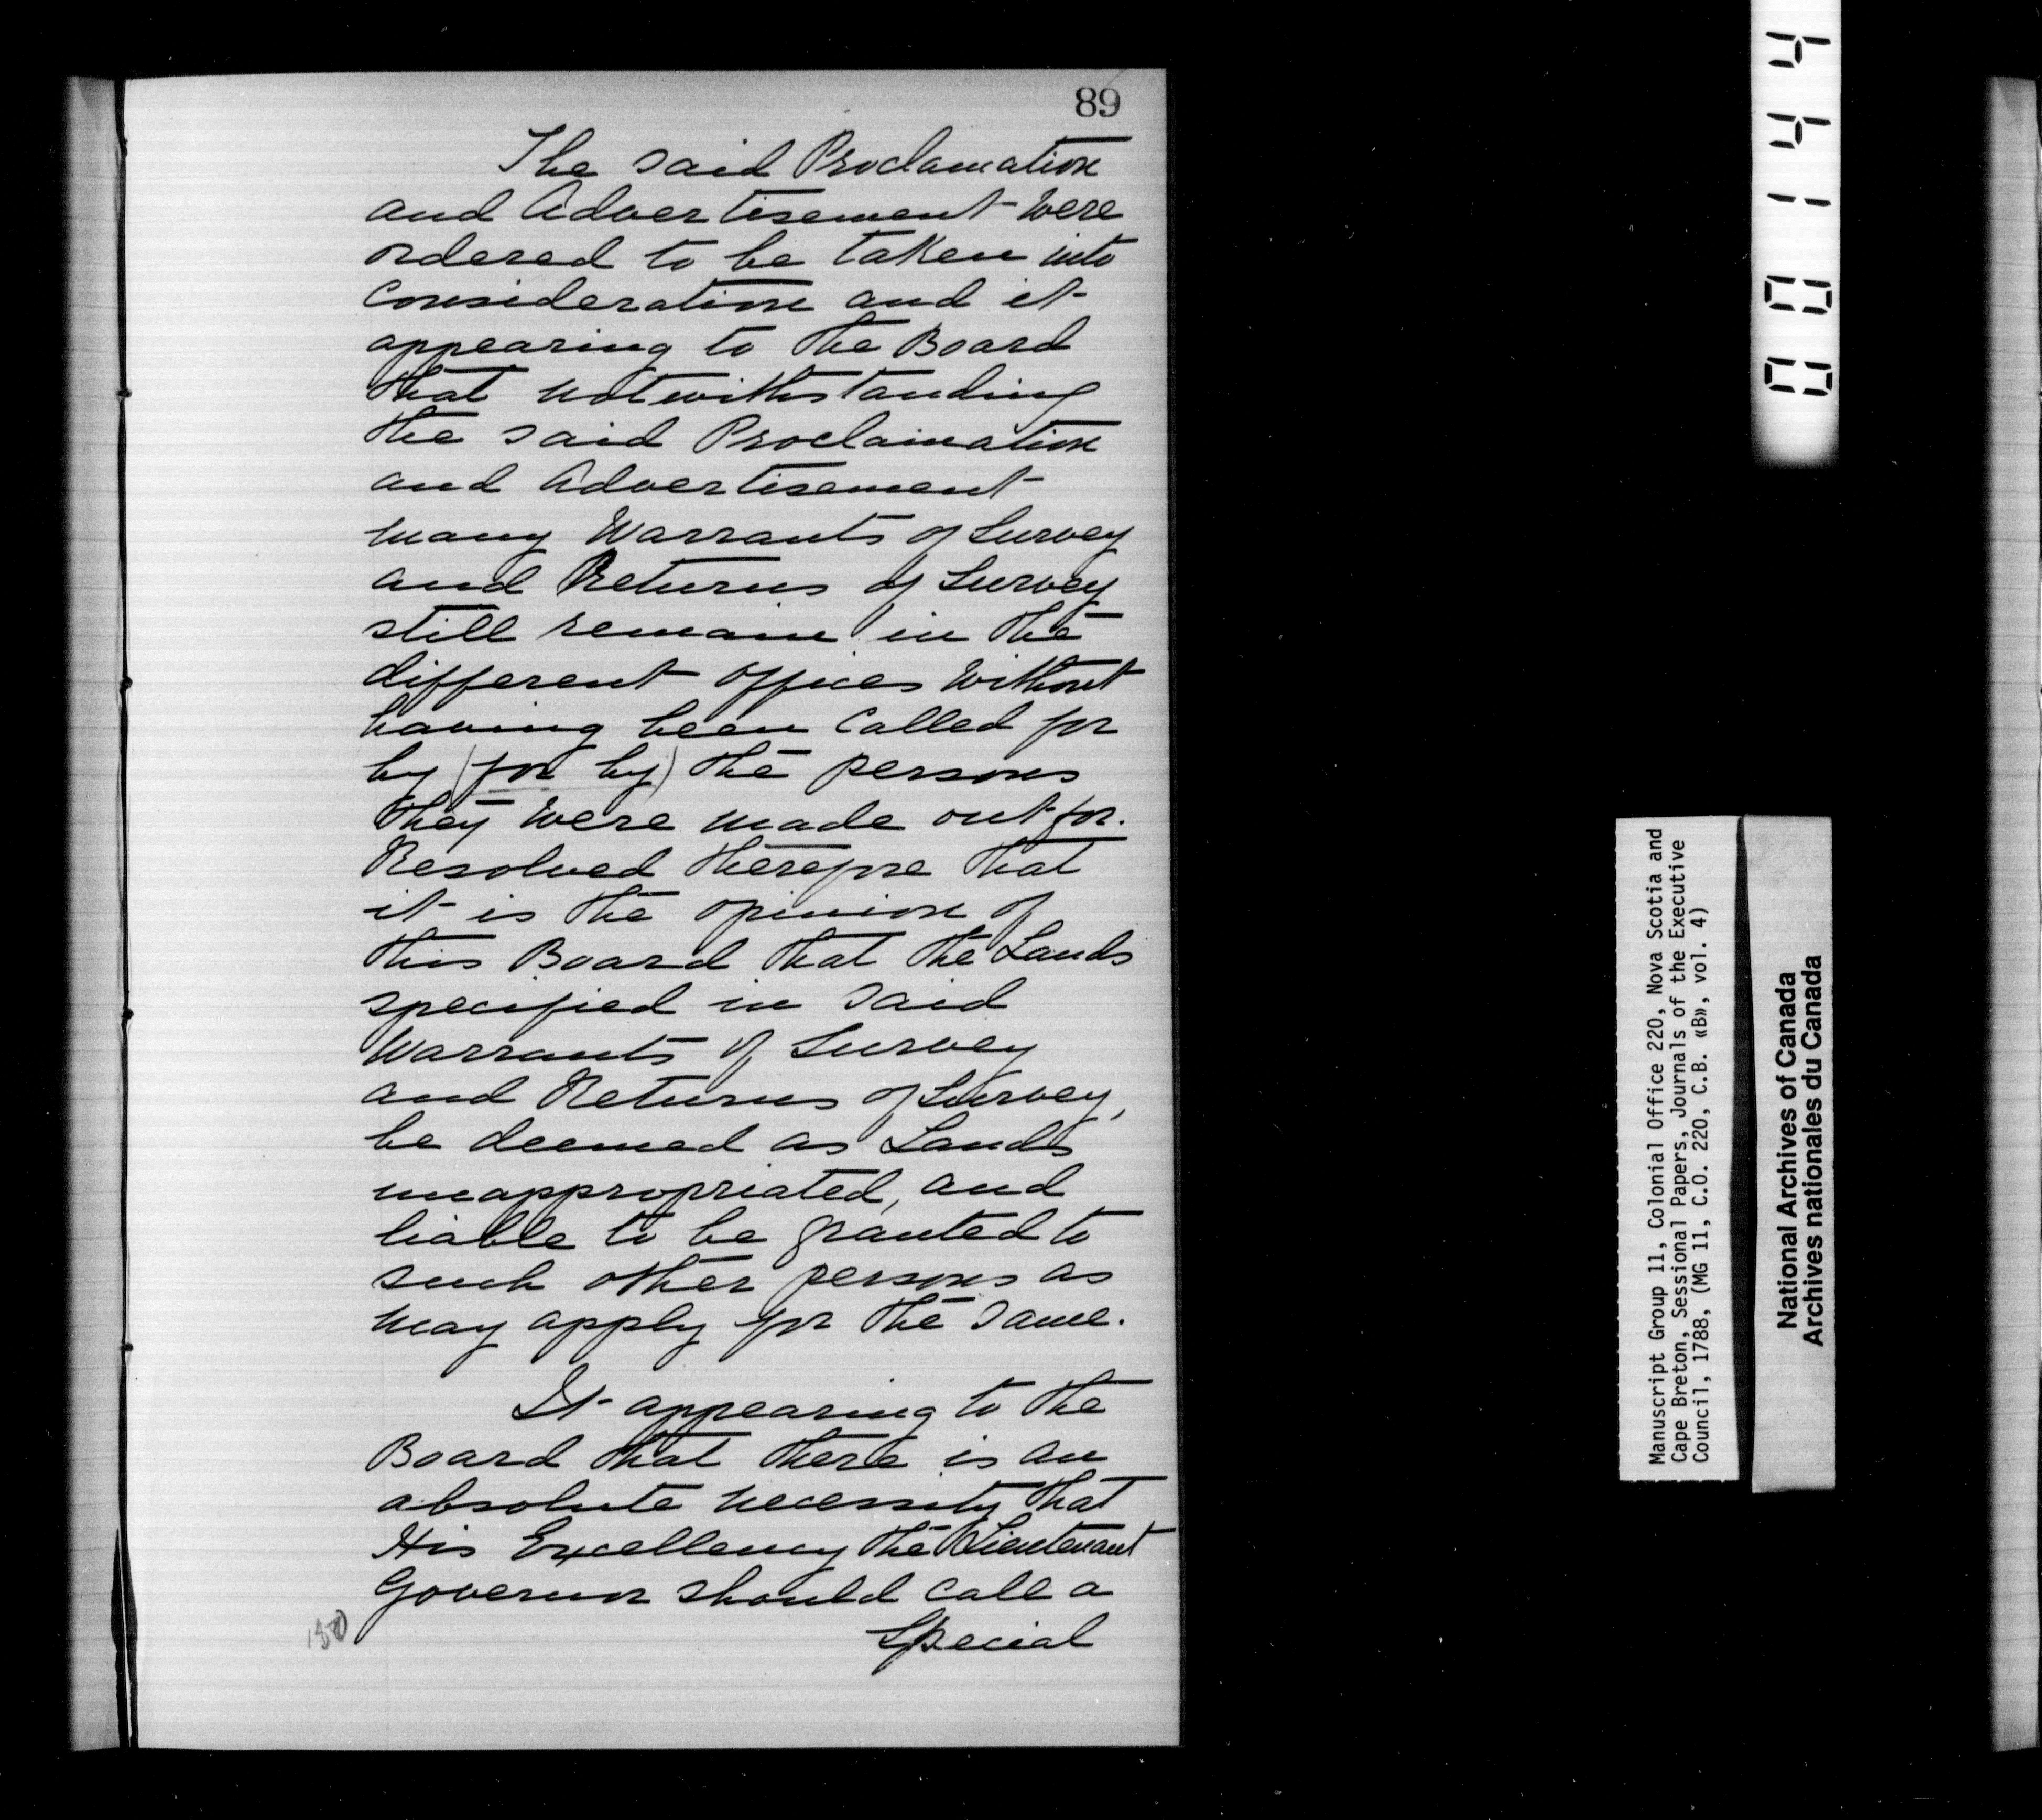 89
The said Proclamation
and Advertisement were
ordered to be taken into
Consideration and it
appearing to the Board
that notwithstanding
the said Proclamation
and Advertisement
many Warrants of Survey
and Returns of Survey
still remain in the
different offices Without
having been Called for
by (for by) the persons
they were made out for.
Resolved therefore that
it is the opinion of
this Board that the Lands
specified in said
Warrants of Survey
and Returns of Survey,
be deemed as Lands
unappropriated, and
liable to be granted to
such other persons as
may apply for the same.
It appearing to the
Board that there is an
absolute necessity that
His Excellency the Lieutenant
Governor should call a
Special
180
001144
Manuscript Group 11, Colonial Office 220, Nova Scotia and
Cape Breton, Sessional Papers, Journals of the Executive
Council, 1788, (MG 11, C.O. 220, C.B. «B», vol. 4)
National Archives of Canada
Archives nationales du Canada